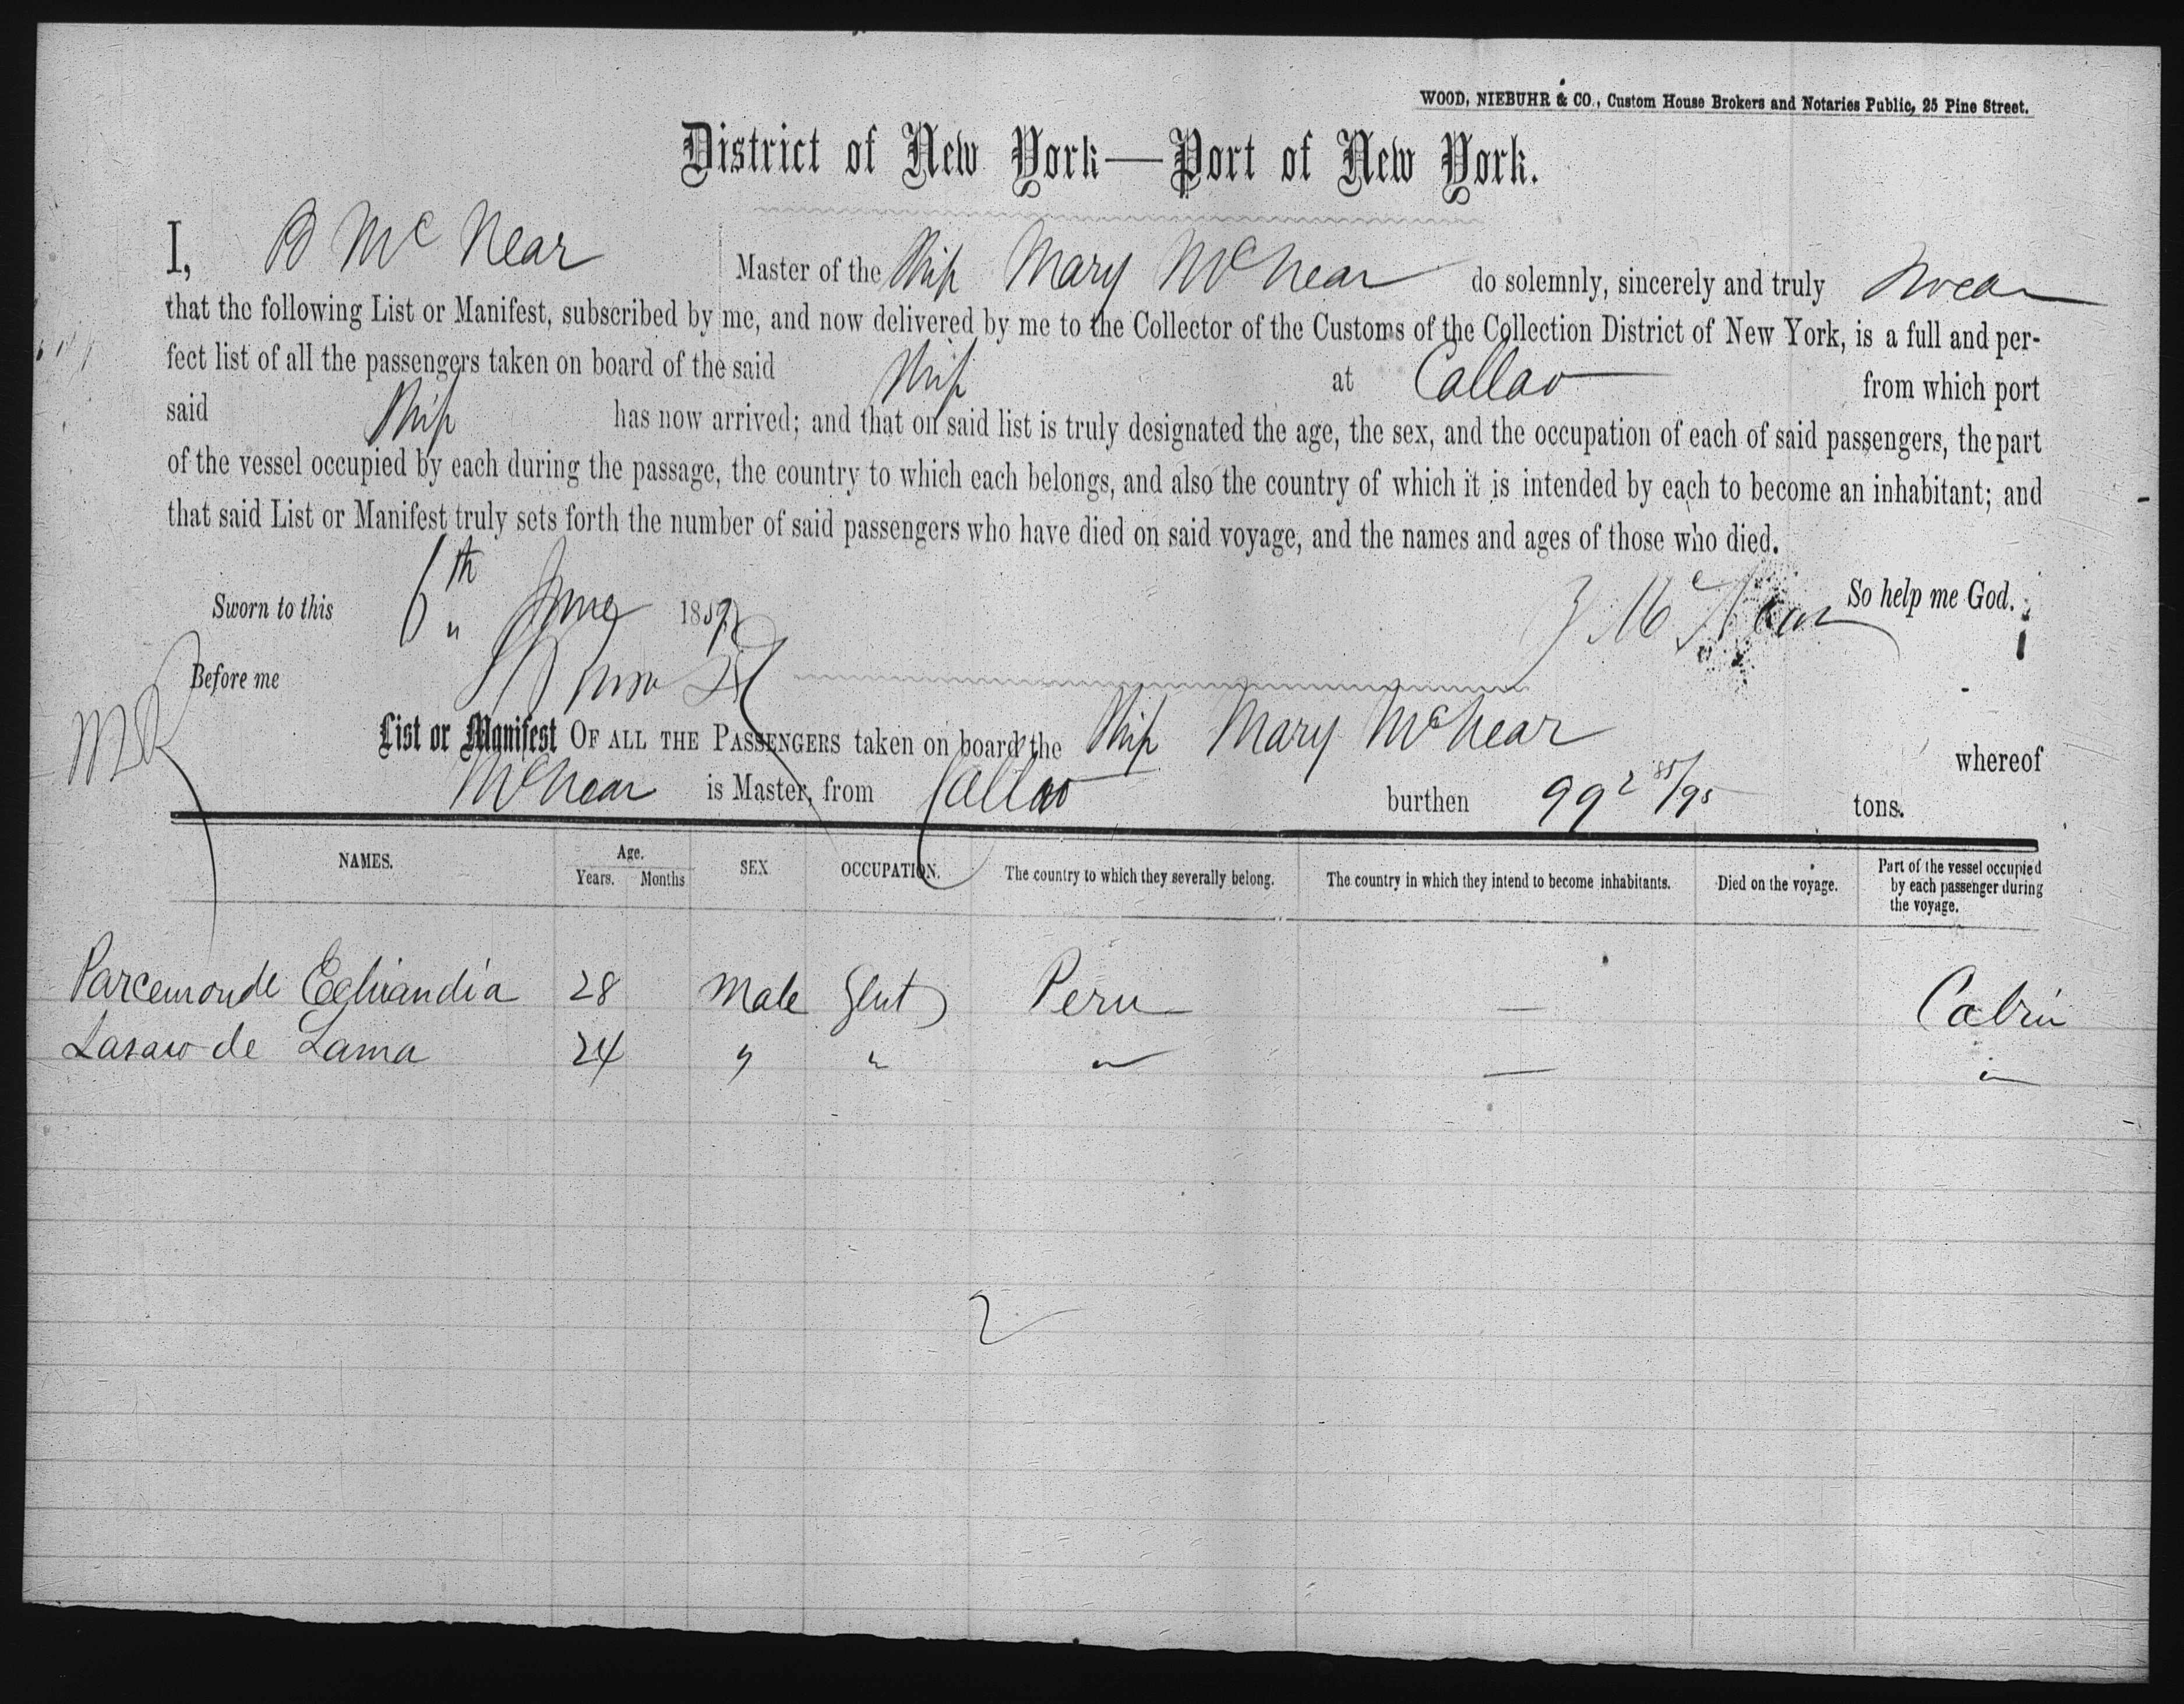 WOOD, NIEBUHR & CO., Custom House Brokers and Notaries Public, 25 Pine Street.
District of New York—Port of New York.
I, B McNear Master of the Ship Mary McNear do solemnly, sincerely and truly swear
that the following List or Manifest, subscribed by me, and now delivered by me to the Collector of the Customs of the Collection District of New York, is a full and per-
fect list of all the passengers taken on board of the said Ship at Callao from which port
said Ship has now arrived; and that on said list is truly designated the age, the sex, and the occupation of each of said passengers, the part
of the vessel occupied by each during the passage, the country to which each belongs, and also the country of which it is intended by each to become an inhabitant; and
that said List or Manifest truly sets forth the number of said passengers who have died on said voyage, and the names and ages of those who died.
Sworn to this 6th June 185 McNear So help me God.
Before me
List or Manifest OF ALL THE PASSENGERS taken on board the Ship Mary McNear whereof
McNear is Master, from Callao burthen 992 85/95 tons.
NAMES. Age. Years. Months SEX OCCUPATION. The country to which they severally belong. The country in which they intend to become inhabitants. Died on the voyage. Part of the vessel occupied by each passenger during the voyage.
Echiandia 28 Male Gent Peru — Cabin
de Lama 24 " " " — "
2